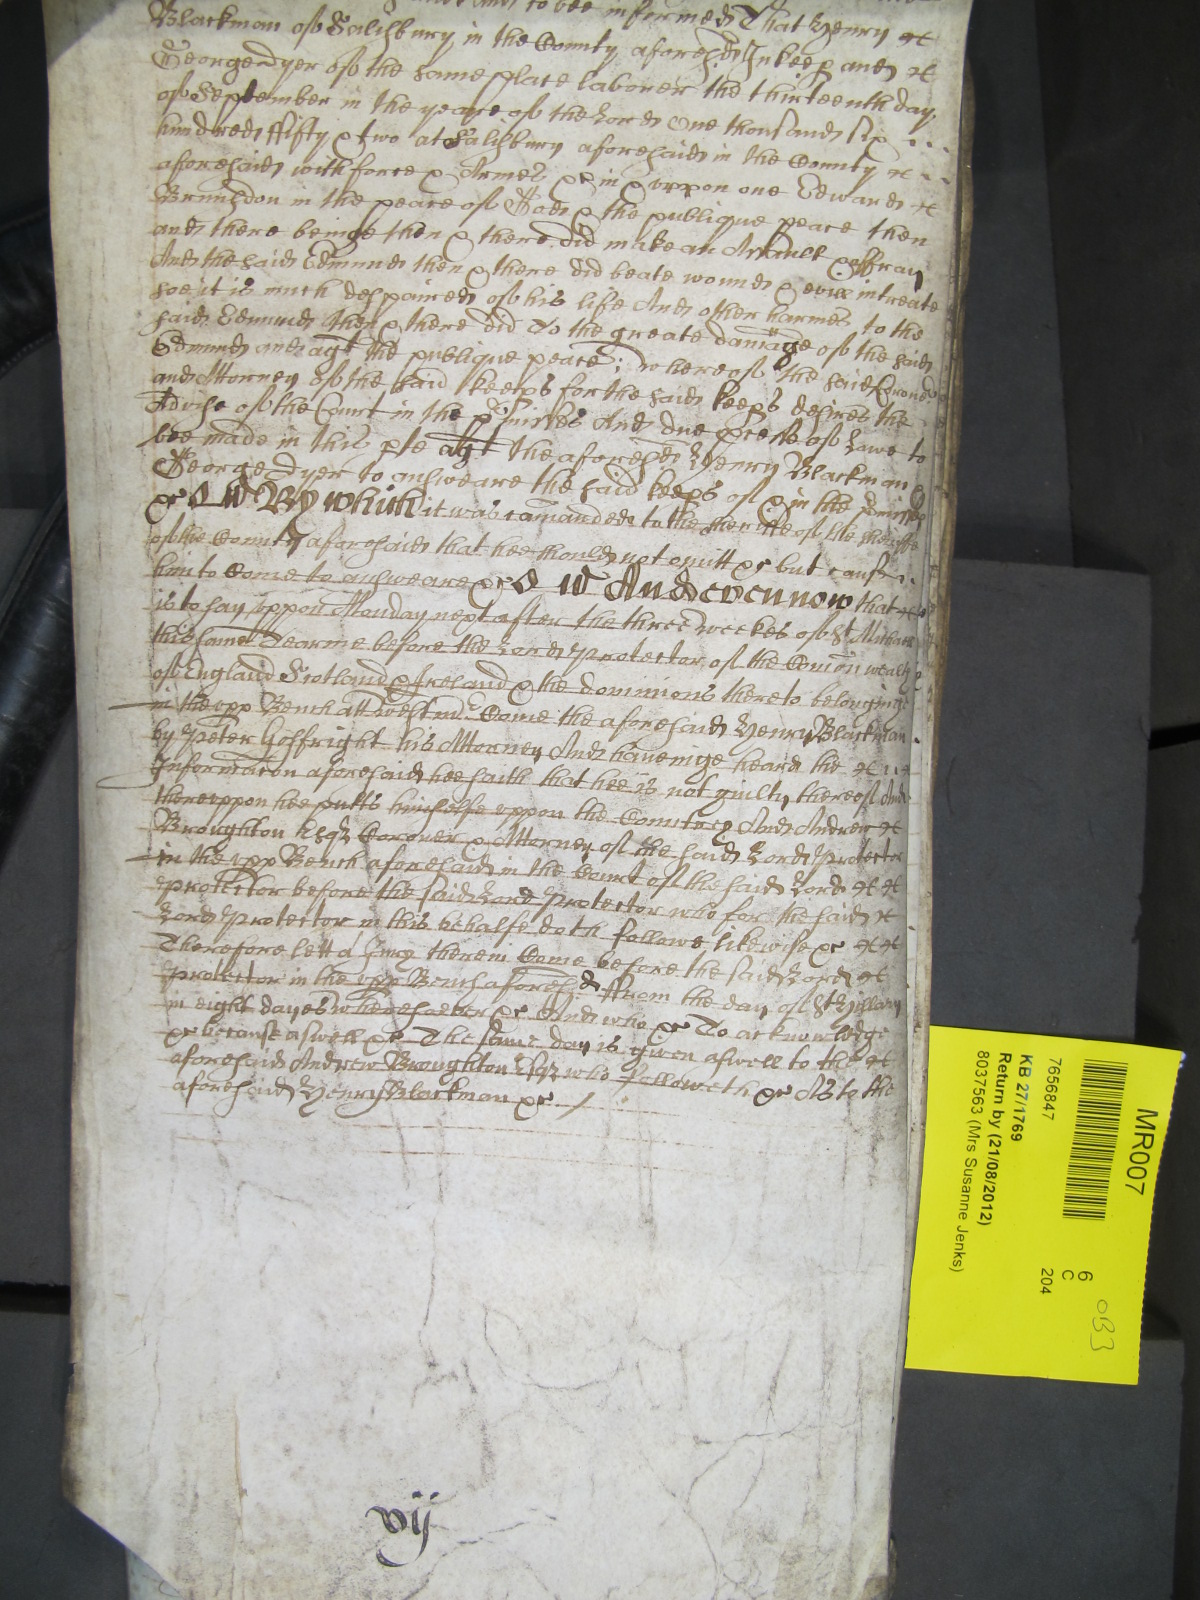 to bee informed That Henry &c
Blackman of Salisbury in the County aforesd Inkeep and &c
George Dyer of the same place laborer the thirteenth day
of September in the yeare of the Lord One thousand six
hundred ffifty & two at Salisbury aforesaid in the County &c
aforesaid with force & Armes &c in & uppon one Edward &c
Brunsdon in the peace of God & the publique peace then
and there beinge then & there did make an Assault & affray
And the said Edmund then & there did beate wound & evill intreate
soe it is much despaired of his life And other harmes to the
said Edmund then & there did To the greate damage of the said
Edmund and agt the publique peace; Whereof the said Coroner
and Attorney of the said keeps for the said keeps desires the
Advise of the Court in the pmisses And due pcess of Lawe to
bee made in this pte agt the aforesd Henry Blackman &
George Dyer to answeare the said keeps of & in the pmisses
&c By which it was comanded to the sheriffe of the
of the County aforesaid that hee should not omitt &c but cause
him to Come to answeare &c And now that &c
is to say uppon Monday next after the three weekes of St Michael
this same Tearme before the Lord Protector of the Comon wealth
of England Scotland & Ireland & the dominions thereto belonginge
in the upp Bench att Westmr Come the aforesaid Henry Blackman
by Peter Goffright his Attorney And haveinge heard the &c
Informacon aforesaid hee saith that hee is not guilty thereof And
thereuppon hee putts himselfe uppon the Country And Andrew &c
Broughton Esqr Coroner & Attorney of the said Lord Protector
in the upp Bench aforesaid in the Court of the said Lord &c &c
protector before the said Lord Protector who for the said &c
Lord Protector in this behalfe doth followe likewise &c &c &c
Therefore lett a Jury therein Come before the said Lord &c
protector in the upp Bench aforesd ffrom the day of St Hillary
in eight dayes &c And who &c To acknowledge
&c because aswell &c The same day is given aswell to the &c
aforesaid Andrew Broughton Esqr who followeth &c As to the
aforesaid Henry Blackman &c
vij
MR007
7656847
KB 27/1769
Return by (21/08/2012)
8037563 (Mrs Susanne Jenks)
6
C
204